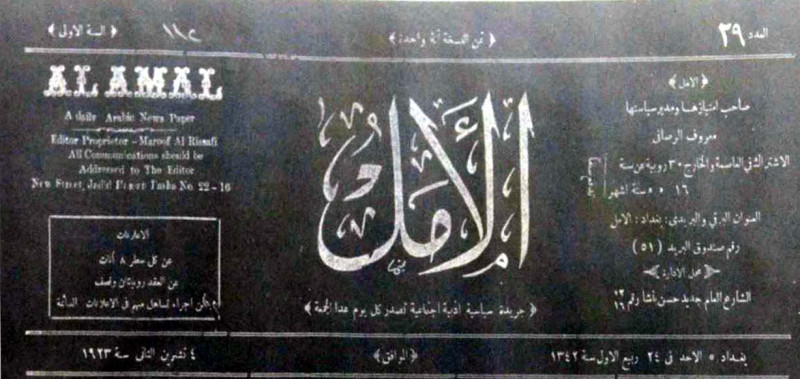 العدد ٢٩
﴿ ثمن النسخة آنة واحدة ﴾
﴿ السنة الاولى ﴾
﴿ الامل ﴾
صاحب امتيازها ومدير سياستها
معروف الرصافي
الاشتراك في العاصمة والخارج ٣٠ روبية عن سنة
١٦ » » ستة اشهر
العنوان البرقي والبريدي: بغداد : الامل
رقم صندوق البريد ( ٥١ )
﴿ محل الادارة ﴾
الشارع العام جديد حسن باشا رقم ٢٢ ١٦
الأمل
﴿ جريدة سياسية ادبية اجتماعية تصدر كل يوم عدا الجمعة ﴾
AL AMAL
A daily Arabic News Paper
Editor Proprietor - Maroof Al Rissafi
All Communications should be
Addressed to The Editor
New Street, Jadid Hasan Pasha No. 22 - 16
الاعلانات
عن كل سطر ٨ آنات
عن العقد روبيتان ونصف
يمكن اجراء تساهل مهم في الاعلانات
بغداد * الاحد في ٢٤ ربيع الاول سنة ١٣٤٢
﴿ الموافق ﴾
٤ تشرين الثاني سنة ١٩٢٣